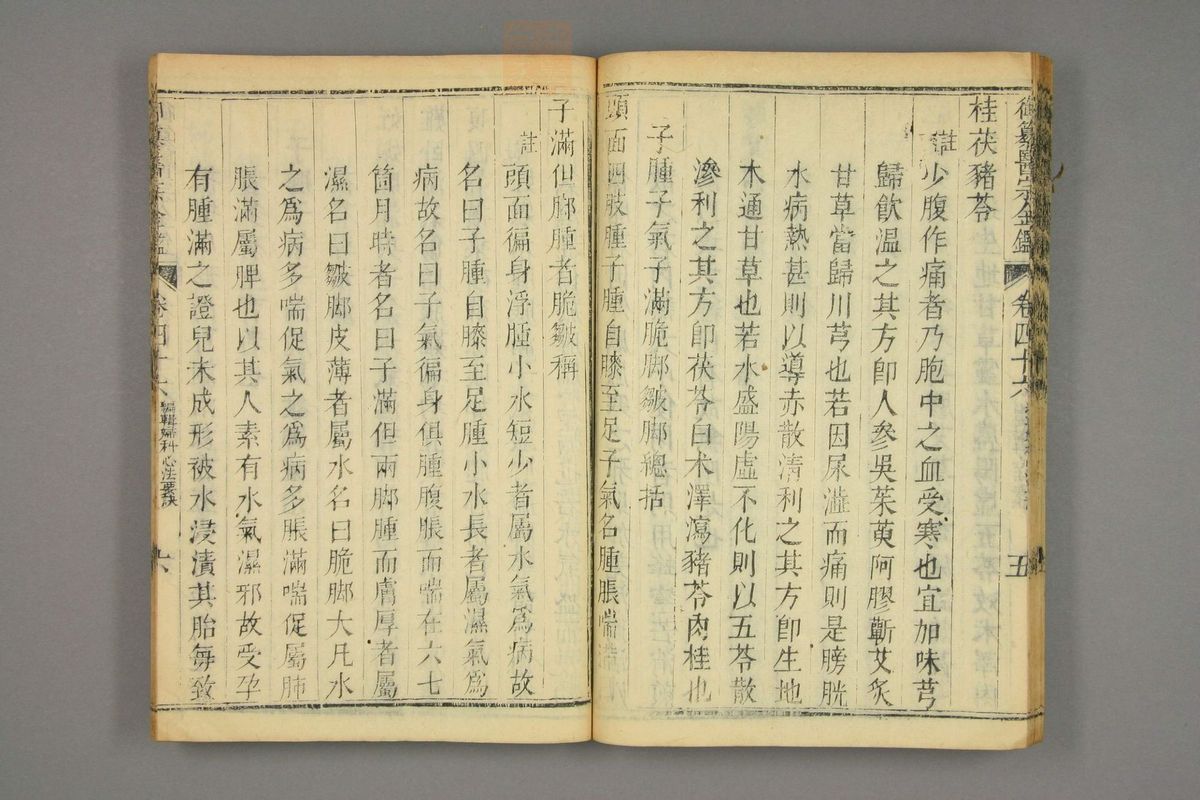 御纂醫宗金鑑 卷四十六 五
桂茯豬苓
註 少腹作痛者乃胞中之血受寒也宜加味芎
歸飲溫之其方卽人參吳茱萸阿膠蘄艾炙
甘草當歸川芎也若因尿澁而痛則是膀胱
水病熱甚則以導赤散清利之其方卽生地
木通甘草也若水盛陽虛不化則以五苓散
滲利之其方卽茯苓白术澤瀉豬苓肉桂也
子腫子氣子滿脆脚皺脚總括
頭面四肢腫子腫自膝至足子氣名腫脹喘滿
子滿但脚腫者脆皺稱
註 頭面徧身浮腫小水短少者屬水氣爲病故
名曰子腫自膝至足腫小水長者屬濕氣爲
病故名曰子氣徧身俱腫腹脹而喘在六七
箇月時者名曰子滿但兩脚腫而膚厚者屬
濕名曰皺脚皮薄者屬水名曰脆脚大凡水
之爲病多喘促氣之爲病多脹滿喘促屬肺
脹滿屬脾也以其人素有水氣濕邪故受孕
有腫滿之證兒未成形被水浸漬其胎每致
卷四十六 編輯婦科心法要訣 六